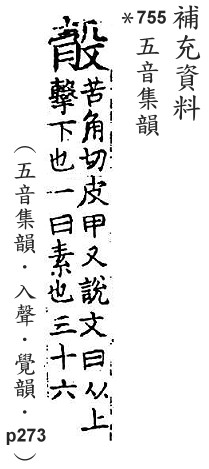 補充資料
*755
五音集韻
㱿
苦角切皮甲又說文曰从上
擊下也一曰素也三十六
（五音集韻．入聲．覺韻．p273）